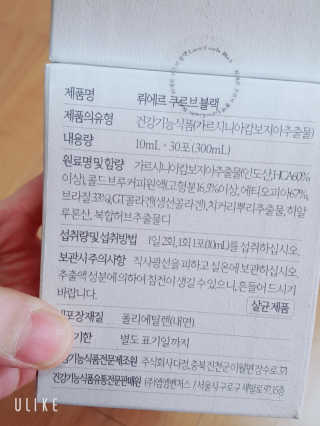 제품명 뤼에르 쿠로브블랙
제품의유형 건강기능식품(가르시니아캄보지아추출물)
내용량 10mL · 30포(300mL)
원료명 및 함량 가르시니아캄보지아추출물(인도산,HCA60%
이상),콜드브루커피원액(고형분16.5%이상,에티오피아67%,
브라질33%),GT콜라겐(생선콜라겐),치커리뿌리추출물,히알
루론산, 복합허브추출물디
섭취량 및 섭취방법 1일 2회, 1회 1포(10mL)를 섭취하십시오.
보관시 주의사항 직사광선을 피하고 실온에 보관하십시오.
추출액 성분에 의하여 침전이 생길 수 있으니, 흔들어 드시기
바랍니다.
살균 제품
포장재질 폴리에틸렌(내면)
기한 별도 표기일까지
기능식품전문제조원 주식회사다정,충북 진천군 이월면 장수로
건강기능식품유통전문판매원 서울시 구로구 새말로
ULIKE